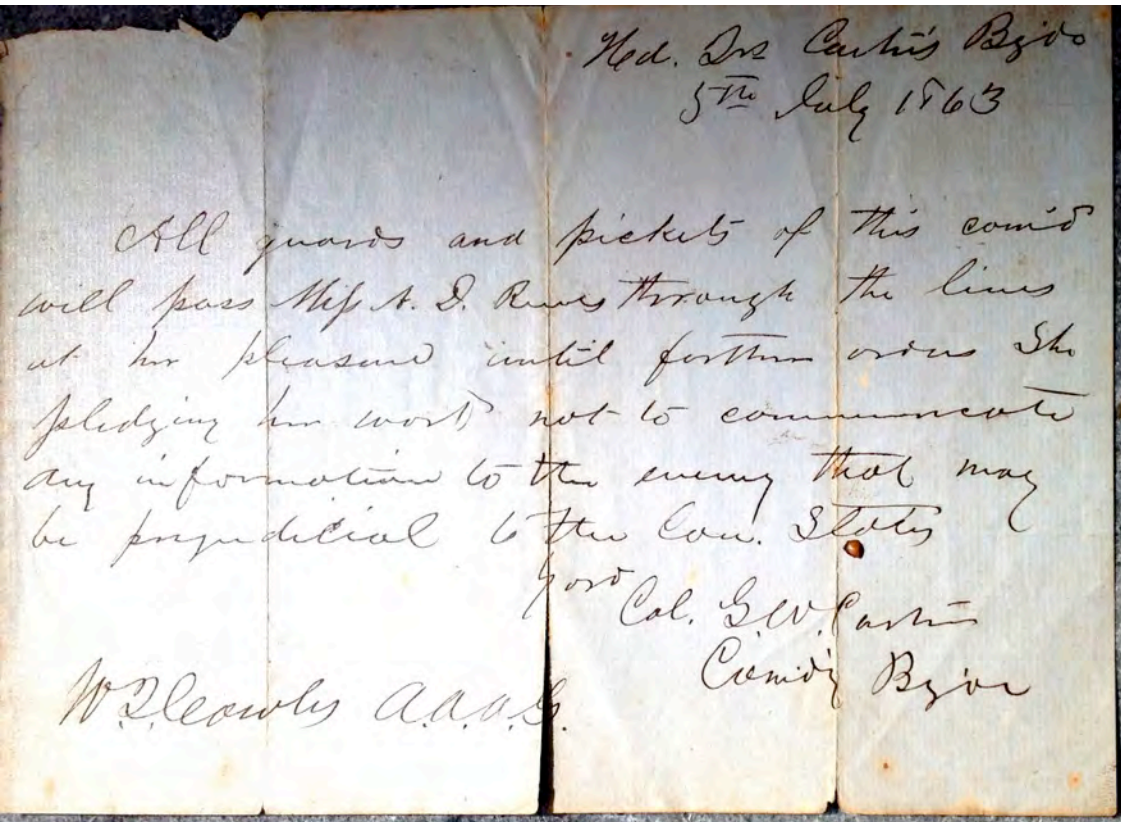 Hd. Qrs Carter's Bgde
5th July 1863
All guards and pickets of this com'd
will pass Miss A. D. through the lines
at her pleasure until further orders She
pledging her word not to communicate
any information to the enemy that may
be prejudicial to the Con. States
By ord
Col. G.W. Carter
Com'dg Bgde
Cowles A.A.A.G.